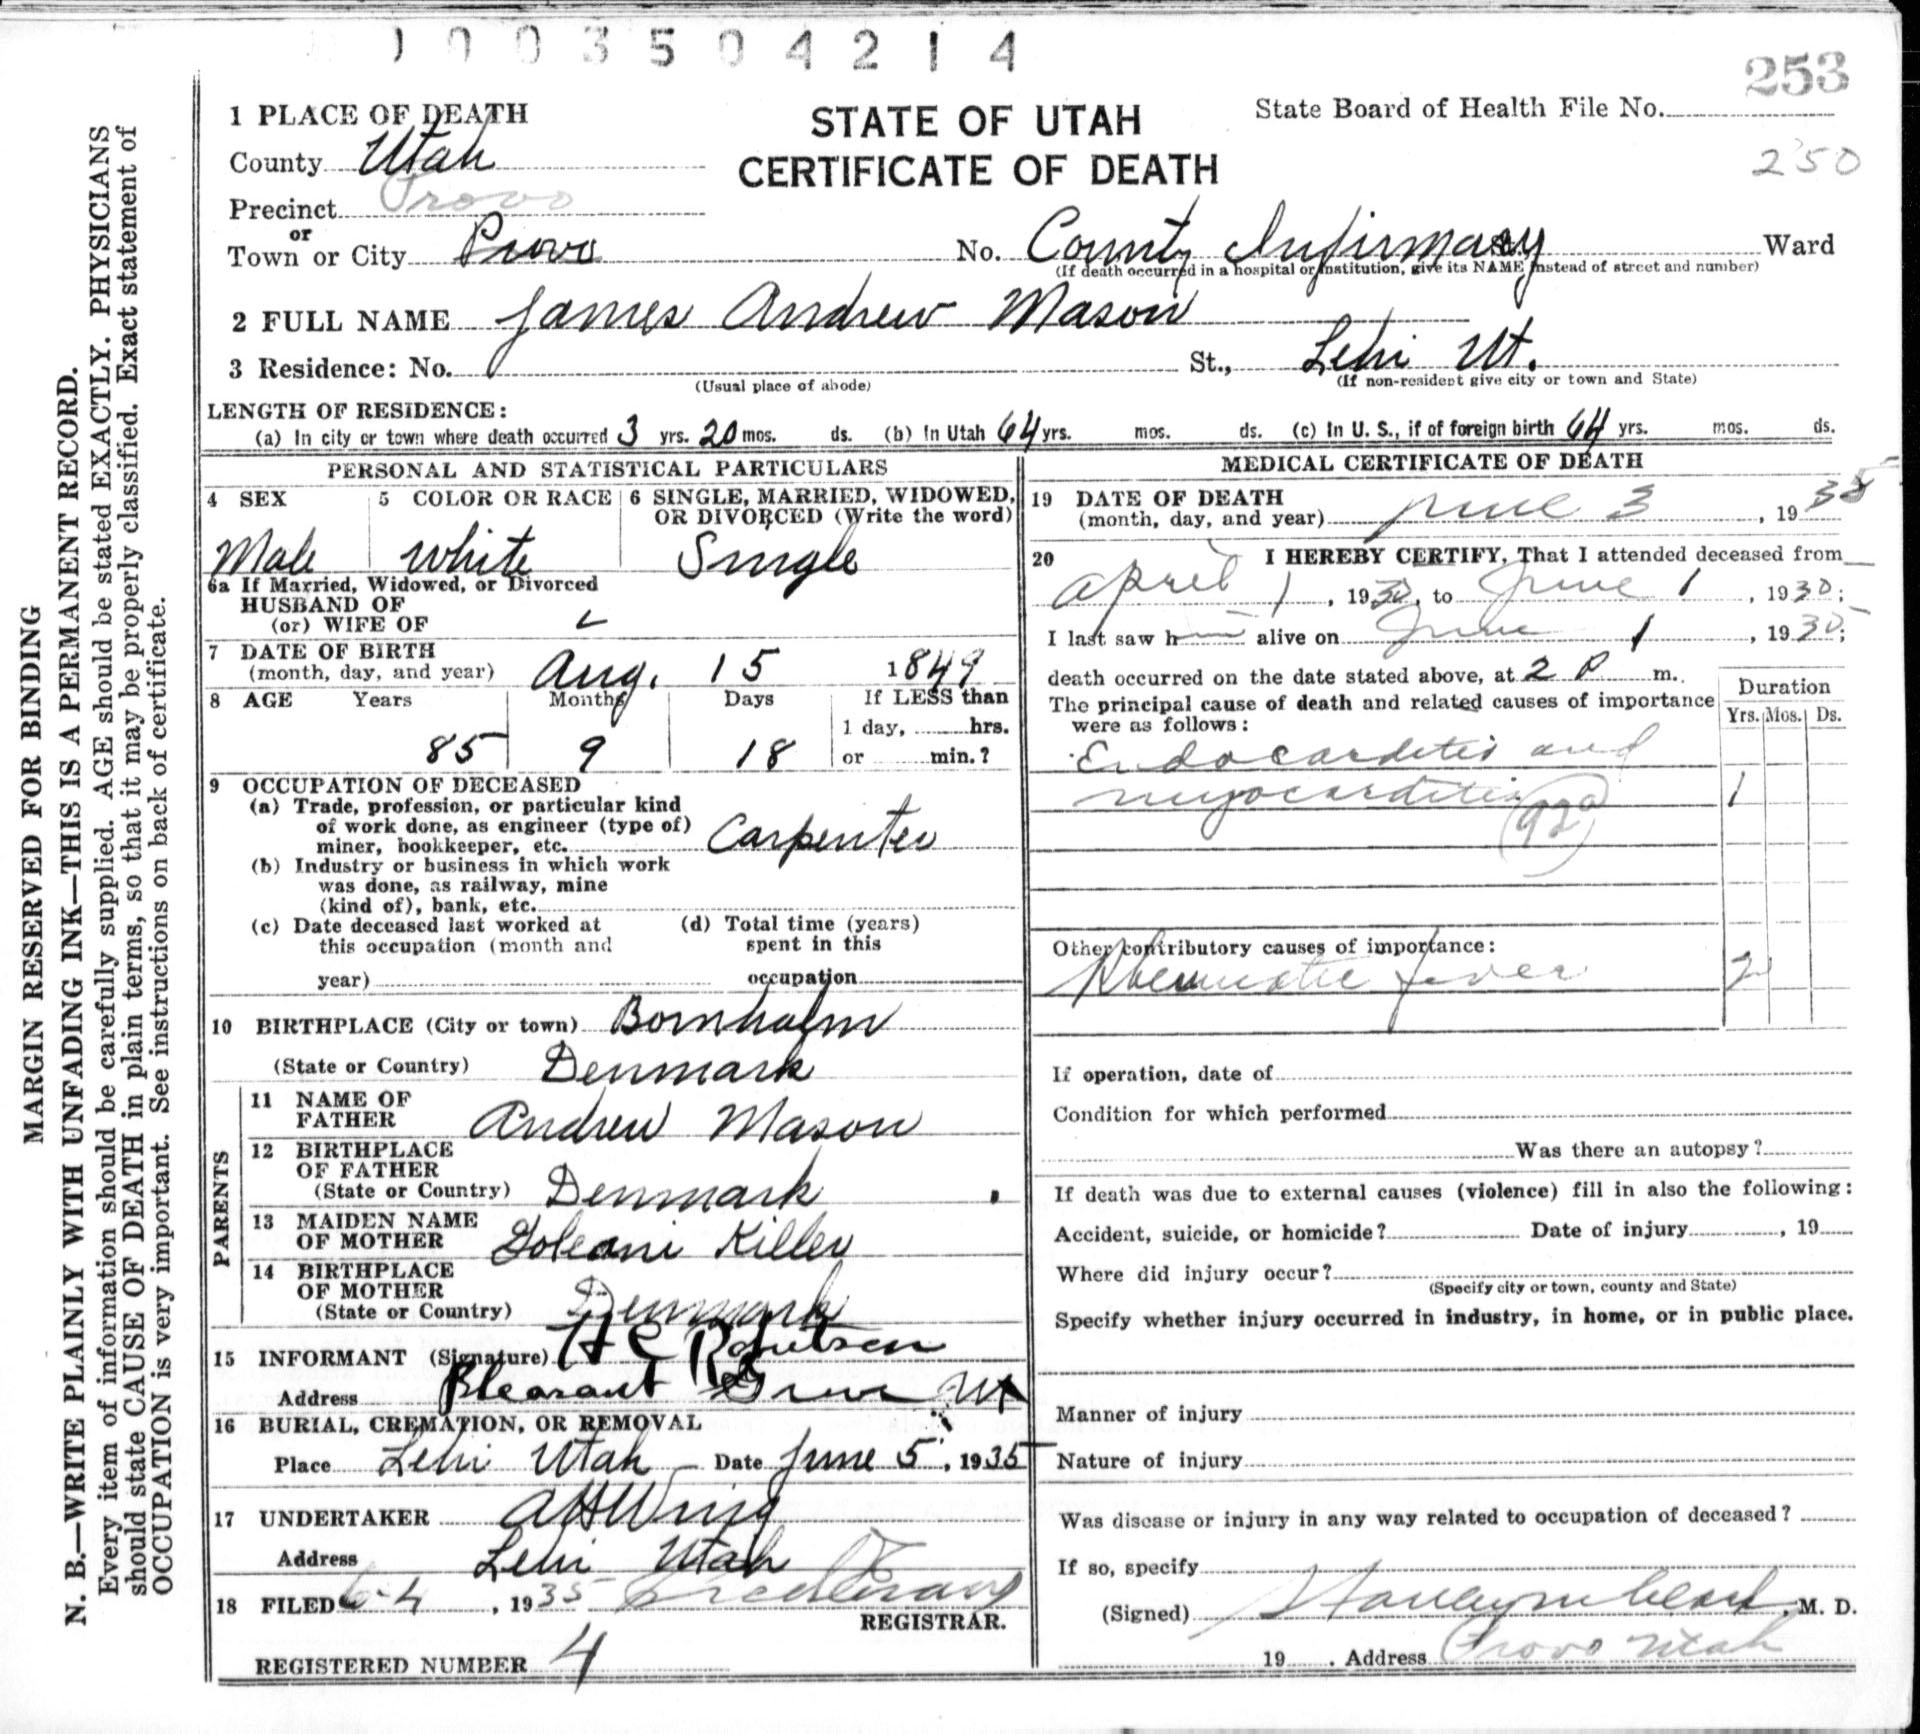 0003504214
253
250
1 PLACE OF DEATH
STATE OF UTAH
CERTIFICATE OF DEATH
State Board of Health File No.
County Utah
Precinct Provo
or
Town or City Provo No. County Infirmary St. Ward
(If death occurred in a hospital or institution, give its NAME instead of street and number)
2 FULL NAME James Andrew Mason
3 Residence: No. St., Lehi Ut.
(Usual place of abode) (If non-resident give city or town and State)
LENGTH OF RESIDENCE:
(a) In city or town where death occurred 3 yrs. 20 mos. ds. (b) In Utah 64 yrs. mos. ds. (c) In U. S., if of foreign birth 64 yrs. mos. ds.
PERSONAL AND STATISTICAL PARTICULARS
4 SEX
Male
5 COLOR OR RACE
White
6 SINGLE, MARRIED, WIDOWED,
OR DIVORCED (Write the word)
Single
6a If Married, Widowed, or Divorced
HUSBAND OF
(or) WIFE OF
7 DATE OF BIRTH
(month, day, and year) Aug. 15 1849
8 AGE Years Months Days If LESS than
1 day, hrs.
85 9 18 or min.?
9 OCCUPATION OF DECEASED
(a) Trade, profession, or particular kind
of work done, as engineer (type of)
miner, bookkeeper, etc. Carpenter
(b) Industry or business in which work
was done, as railway, mine
(kind of), bank, etc.
(c) Date deceased last worked at
this occupation (month and
year)
(d) Total time (years)
spent in this
occupation
10 BIRTHPLACE (City or town) Bornholm
(State or Country) Denmark
PARENTS
11 NAME OF
FATHER Andrew Mason
12 BIRTHPLACE
OF FATHER
(State or Country) Denmark
13 MAIDEN NAME
OF MOTHER Killer
14 BIRTHPLACE
OF MOTHER
(State or Country) Denmark
15 INFORMANT (Signature) H C
Address Pleasant Grove Ut
16 BURIAL, CREMATION, OR REMOVAL
Place Lehi Utah Date June 5, 1935
17 UNDERTAKER A H Wing
Address Lehi Utah
18 FILED 6-4, 1935
REGISTRAR.
REGISTERED NUMBER 4
MEDICAL CERTIFICATE OF DEATH
19 DATE OF DEATH
(month, day, and year) June 3, 1935
20 I HEREBY CERTIFY, That I attended deceased from
April 1, 1930, to June 1, 1930;
I last saw h alive on June 1, 1935;
death occurred on the date stated above, at 2 P m.
The principal cause of death and related causes of importance
were as follows:
Duration
Yrs. Mos. Ds.
Endocarditis and
myocarditis 1
Other contributory causes of importance:
Rheumatic fever 2
If operation, date of
Condition for which performed
Was there an autopsy?
If death was due to external causes (violence) fill in also the following:
Accident, suicide, or homicide? Date of injury, 19
Where did injury occur?
(Specify city or town, county and State)
Specify whether injury occurred in industry, in home, or in public place.
Manner of injury
Nature of injury
Was disease or injury in any way related to occupation of deceased?
If so, specify
(Signed) , M. D.
19 . Address Provo Utah
MARGIN RESERVED FOR BINDING
N. B.—WRITE PLAINLY WITH UNFADING INK—THIS IS A PERMANENT RECORD.
Every item of information should be carefully supplied. AGE should be stated EXACTLY. PHYSICIANS
should state CAUSE OF DEATH in plain terms, so that it may be properly classified. Exact statement of
OCCUPATION is very important. See instructions on back of certificate.